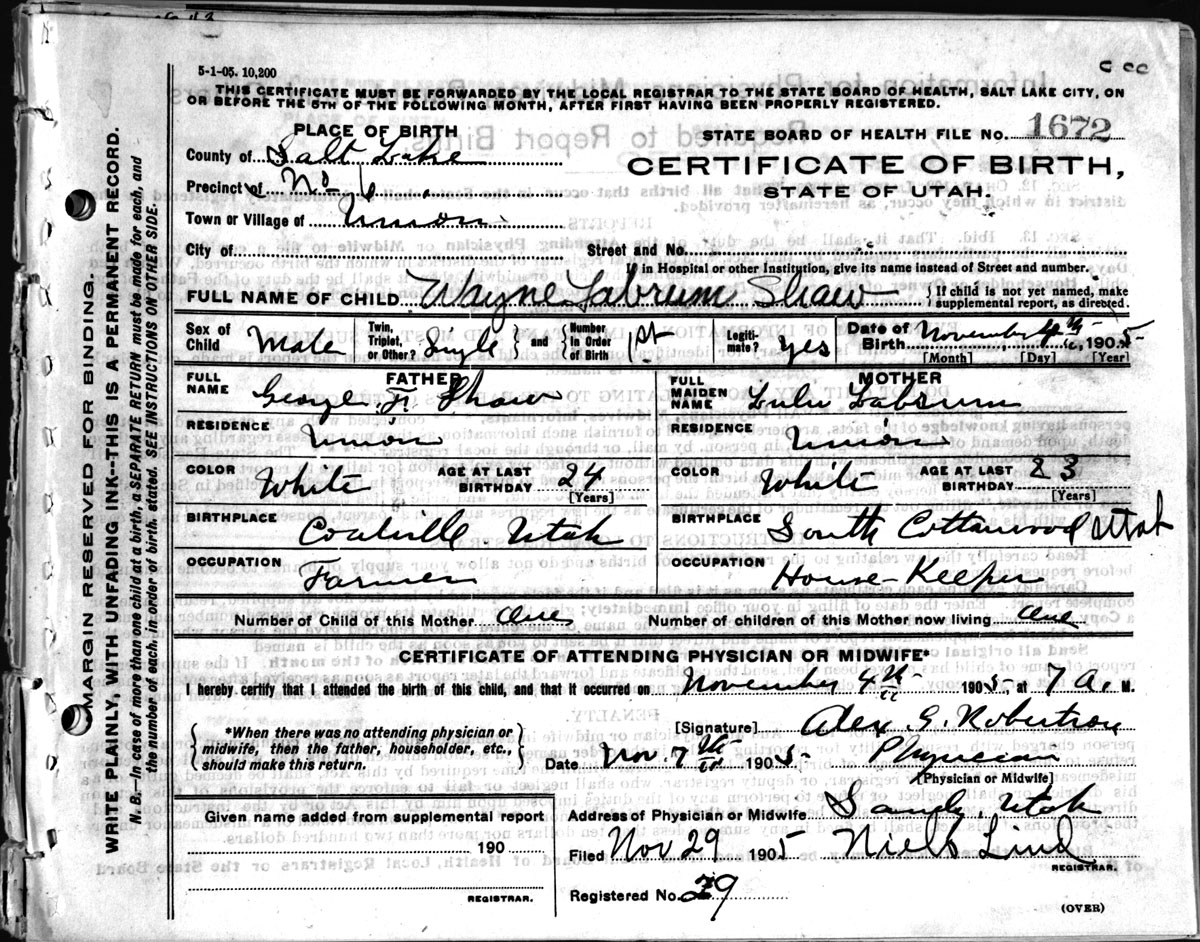 5-1-05. 10,200
THIS CERTIFICATE MUST BE FORWARDED BY THE LOCAL REGISTRAR TO THE STATE BOARD OF HEALTH, SALT LAKE CITY, ON
OR BEFORE THE 5TH OF THE FOLLOWING MONTH, AFTER FIRST HAVING BEEN PROPERLY REGISTERED.
PLACE OF BIRTH
STATE BOARD OF HEALTH FILE NO. 1672
County of Salt Lake
CERTIFICATE OF BIRTH,
Precinct of No 6
STATE OF UTAH.
Town or Village of Union
City of Street and No.
If in Hospital or other Institution, give its name instead of Street and number.
FULL NAME OF CHILD Wayne Labrum Shaw { If child is not yet named, make supplemental report, as directed.
Sex of Child Male Twin, Triplet, or Other? Single } and { Number in Order of Birth 1st Legitimate? yes Date of Birth November 4th, 1905
[Month] [Day] [Year]
FATHER
MOTHER
FULL NAME George F. Shaw
FULL MAIDEN NAME Lulu Labrum
RESIDENCE Union
RESIDENCE Union
COLOR White AGE AT LAST BIRTHDAY 24 [Years]
COLOR White AGE AT LAST BIRTHDAY 23 [Years]
BIRTHPLACE Coalville Utah
BIRTHPLACE South Cottonwood Utah
OCCUPATION Farmer
OCCUPATION House-Keeper
Number of Child of this Mother One Number of children of this Mother now living One
CERTIFICATE OF ATTENDING PHYSICIAN OR MIDWIFE*
I hereby certify that I attended the birth of this child, and that it occurred on November 4th 1905, at 7 A. M.
{ *When there was no attending physician or midwife, then the father, householder, etc., should make this return. }
[Signature] Alex. G. Robertson
Date Nov. 7th 1905 Physician
[Physician or Midwife]
Given name added from supplemental report
190
REGISTRAR.
Address of Physician or Midwife Sandy, Utah
Filed Nov 29 1905 Niels Lind
REGISTRAR.
Registered No. 29
(OVER)
MARGIN RESERVED FOR BINDING.
WRITE PLAINLY, WITH UNFADING INK--THIS IS A PERMANENT RECORD.
N. B.--In case of more than one child at a birth, a SEPARATE RETURN must be made for each, and
the number of each, in order of birth, stated. SEE INSTRUCTIONS ON OTHER SIDE.